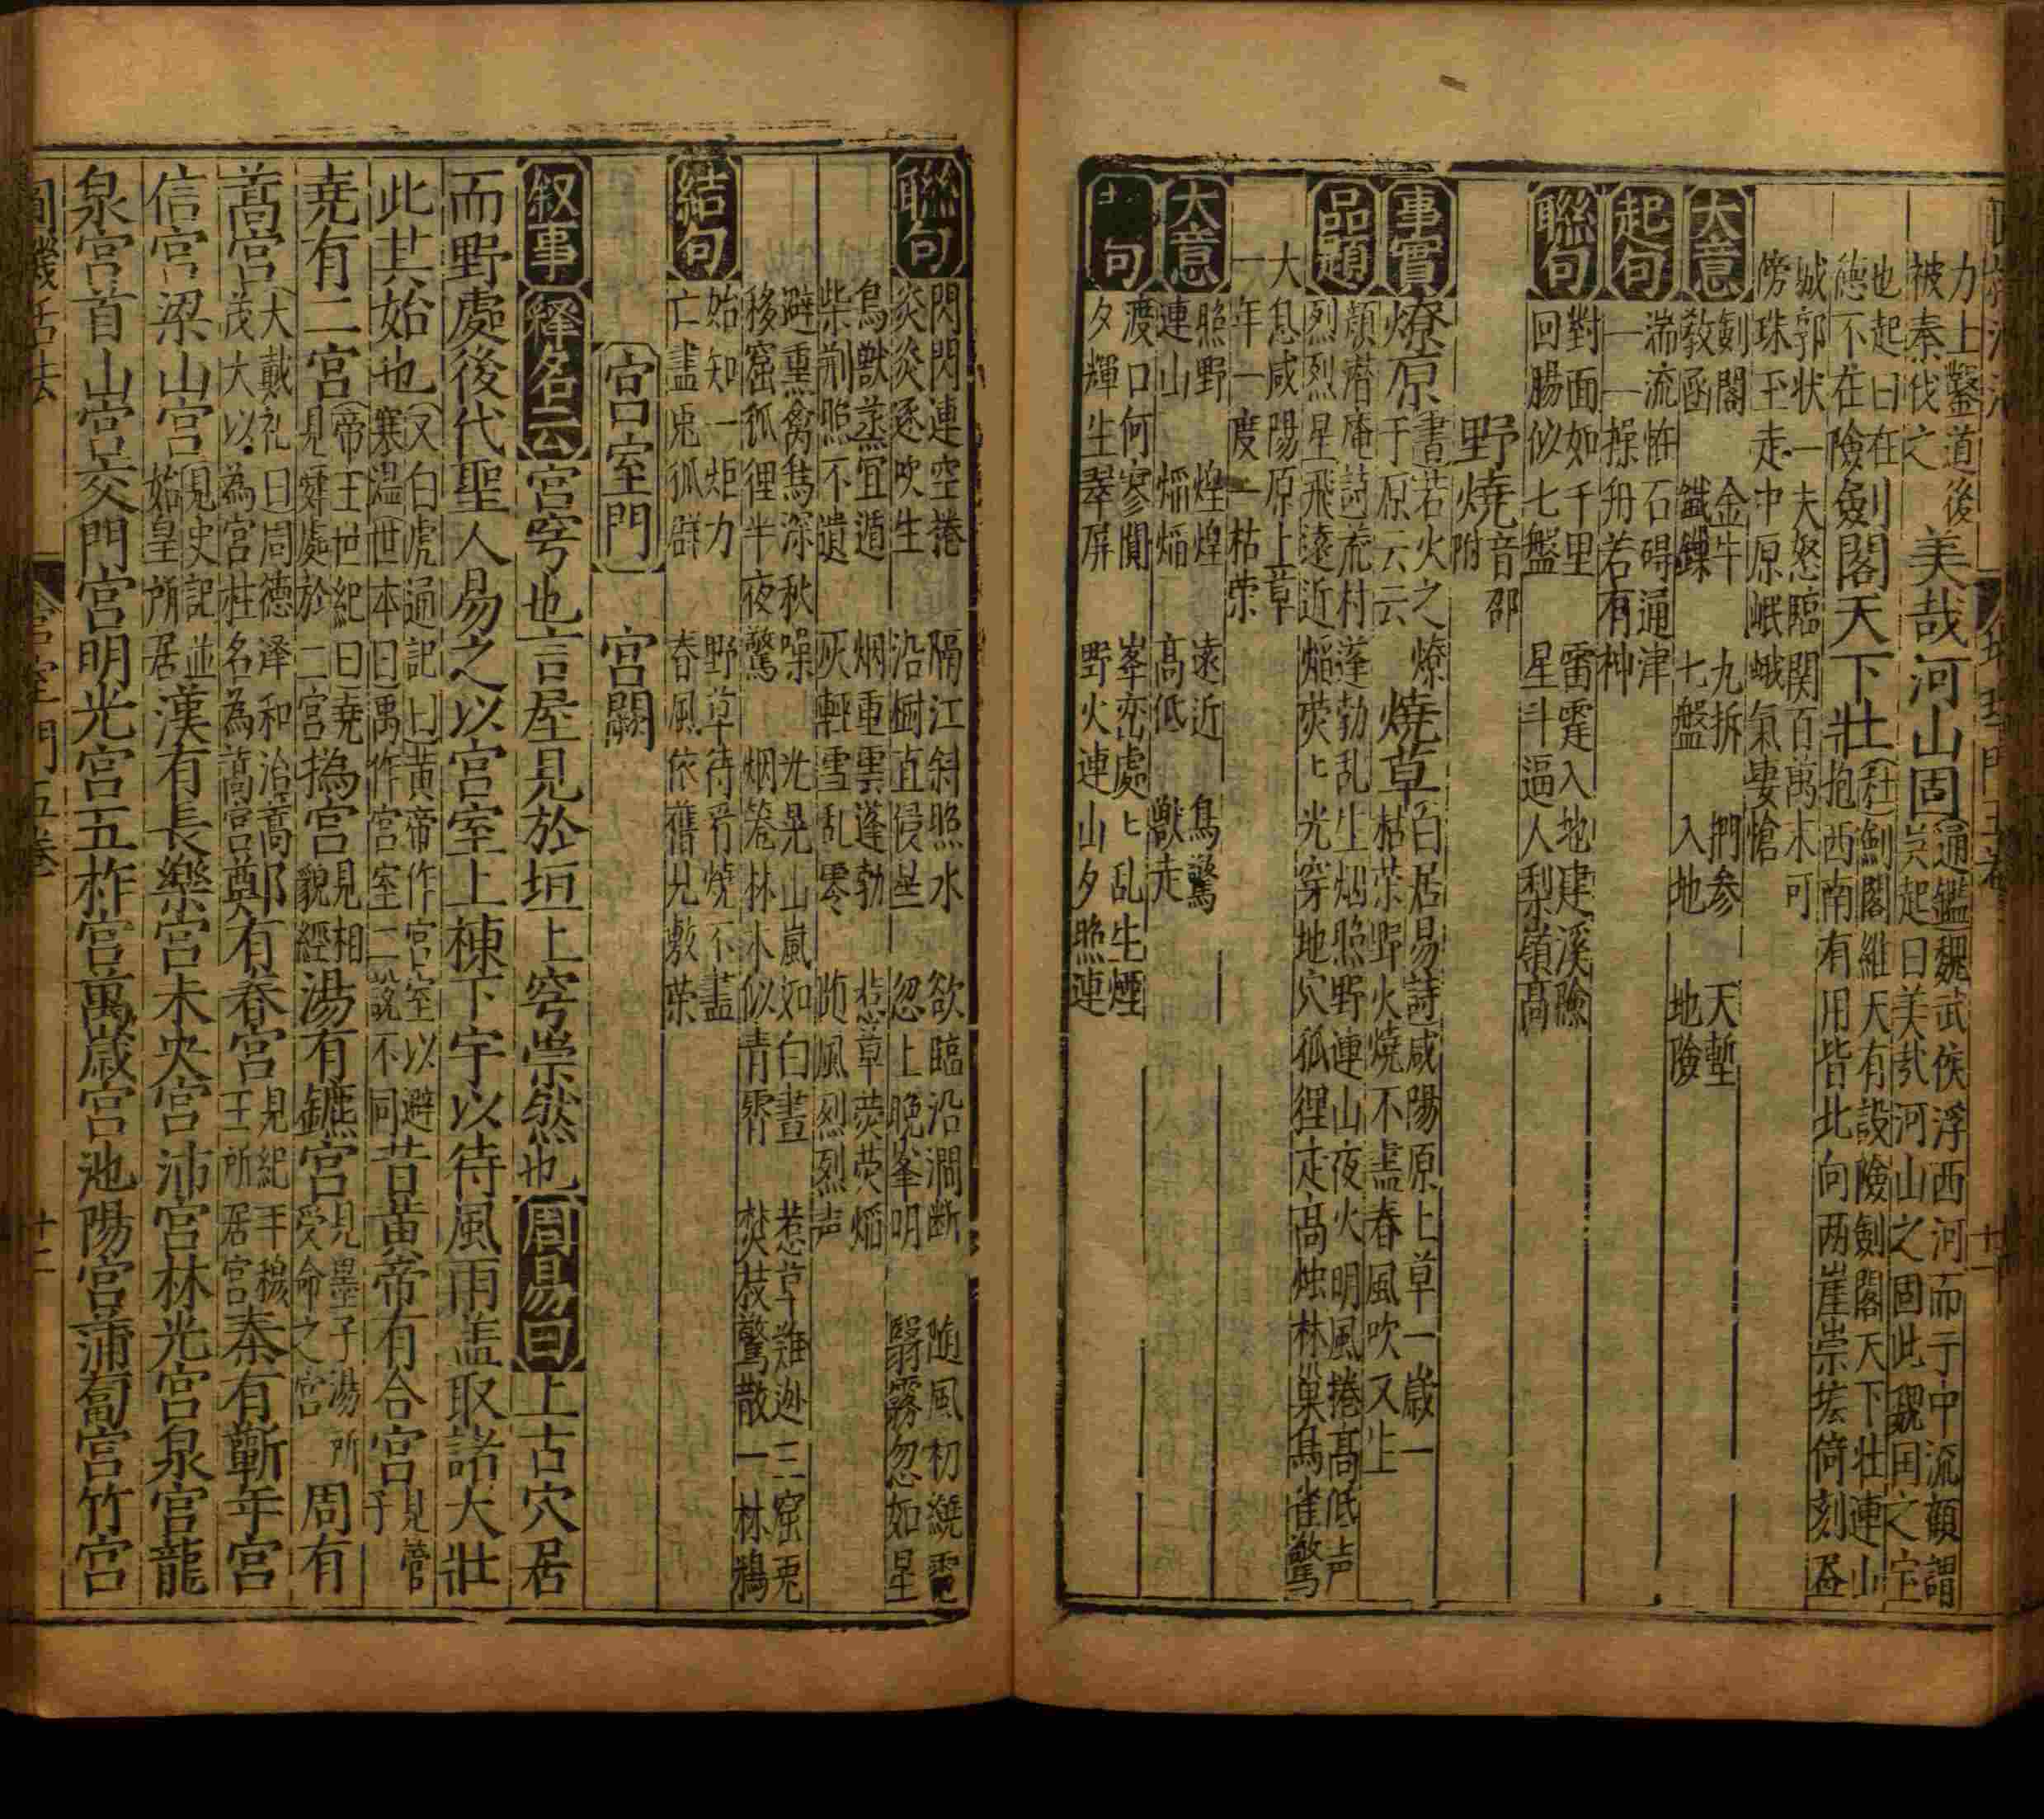 力上鑿道後
被秦伐之
美哉河山固
通鑑魏武侯浮西河而于中流顧謂
吴起曰美哉河山之固此魏国之宝
也起曰在
德不在險
劍閣天下壯
杜劍閣維天有設險劍閣天下壮連山
抱西南有用皆北向两崖崇坛倚刻画
城郭状一夫怒臨関百萬未可
傍珠玉走中原岷峨氣悽愴
大意
劍閣 金牛 九折 捫参 天塹
敎函 鐵鏁 七盤 入地 地險
起句
湍流怍石碍通津
一一操舟若有神
聯句
對面如千里 雷霆入地建溪險
回腸似七盤 星斗逼人梨嶺高
野燒音邵
附
事實
燎原
書若火之燎
于原云云
燒草
白居易詩咸陽原上草一歳一
枯荣野火燒不盡春風吹又生
品題
顔潜庵詩荒村蓬勃乱生烟照野連山夜火明風捲高低声
烈烈星飛遠近熖荧〻光穿地穴狐狸走高烛林巢鳥雀驚
大息咸陽原上草
一年一度一枯荣
大意
照野 煌煌 遠近 鳥驚
連山 熖熖 高低 獸走
句
渡口何寥閴 峯峦處〻乱生煙
夕輝生翠屏 野火連山夕照連
聯句
閃閃連空捲 隔江斜照水 欲臨沿澗断 随風初繞電
炎炎逐吹生 沿樹直侵星 忽上晚峯明 翳霧忽如星
鳥獸蒸宜遁 烟重雲蓬勃 惹草荧荧熖
柴荊照不遺 灰輕雪乱零 随風烈烈声
避熏禽隽深秋噪 光晃山嵐如白晝 惹草雉迯三窟兎
移窟狐狸半夜驚 烟篭林木似青霄 焚枝驚散一林鴉
結句
始知一炬力 野草待君燒不盡
亡盡兎狐群 春風依舊尤敷荣
宫室門
宫闕
叙事 釋名云 宫穹也言屋見於垣上穹崇然也 周易曰 上古穴居
而野處後代聖人易之以宫室上棟下宇以待風雨盖取諸大壮
此其始也
又白虎通記曰黄帝作宫室以避
寒温世本曰禹作宫室二說不同
昔黄帝有合宫
見管
子
堯有二宫
帝王世紀曰堯
見舜處於二宫
㧑宫
見相
貌經
湯有鑣宫
見墨子湯所
受命之宫
周有
蒿宫
大戴礼曰周德泽和治蒿
茂大以為宫柱名為蒿宫
鄭有春宫
見紀年穆
王所居宫
秦有蘄年宫
信宫梁山宫
見史記並
始皇所居
漢有長樂宫未央宫沛宫林光宫泉宫龍
泉宫首山宫交門宫明光宫五柞宫萬歳宫池陽宫蒲萄宫竹宫
宫室門五卷
十二